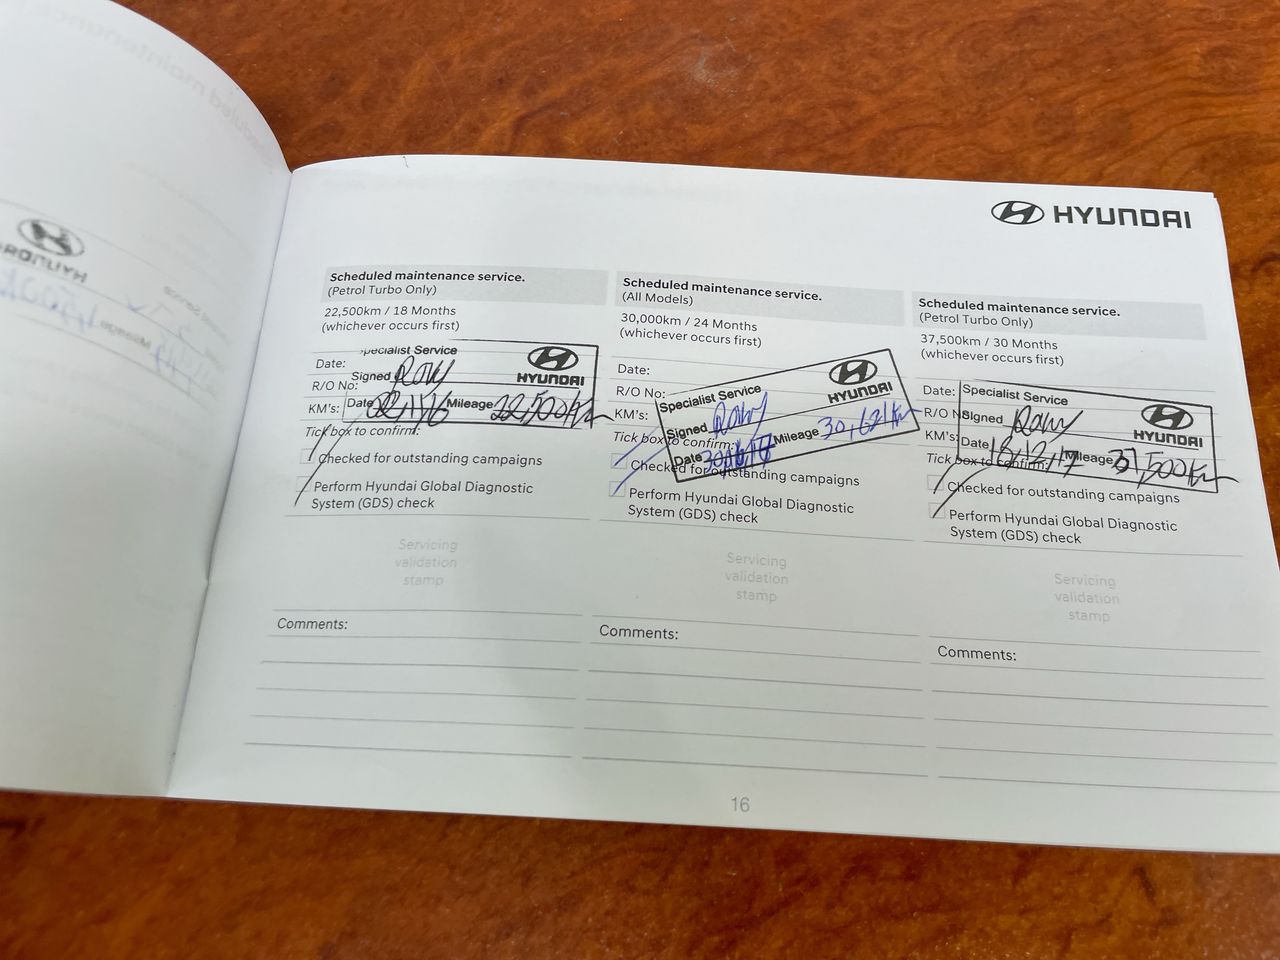 HYUNDAI
Scheduled maintenance service.
(Petrol Turbo Only)
22,500km / 18 Months
(whichever occurs first)
Date:
R/O No:
KM's:
Specialist Service
Signed
HYUNDAI
Date 22/11/16 Mileage 22,500km
Tick box to confirm:
Checked for outstanding campaigns
Perform Hyundai Global Diagnostic
System (GDS) check
Servicing
validation
stamp
Comments:
Scheduled maintenance service.
(All Models)
30,000km / 24 Months
(whichever occurs first)
Date:
R/O No:
KM's:
Specialist Service
Signed
HYUNDAI
Date Mileage 30,621km
Tick box to confirm:
Checked for outstanding campaigns
Perform Hyundai Global Diagnostic
System (GDS) check
Servicing
validation
stamp
Comments:
Scheduled maintenance service.
(Petrol Turbo Only)
37,500km / 30 Months
(whichever occurs first)
Date:
R/O No:
KM's:
Specialist Service
Signed
HYUNDAI
Date 18,12,17 Mileage 37,500km
Tick box to confirm:
Checked for outstanding campaigns
Perform Hyundai Global Diagnostic
System (GDS) check
Servicing
validation
stamp
Comments:
16